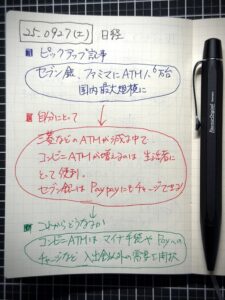 25.0927(土) 日経
ピックアップ記事
セブン銀、ファミマにATM1.6万台
国内最大規模に
自分にとって
三菱などのATMが減る中で
コンビニATMが増えるのは 生活者に
とって便利。
セブン銀は Paypayにもチャージできる!
これからどうなるか
コンビニATMは マイナ手続や Payへの
チャージなど 入出金以外の需要も開拓